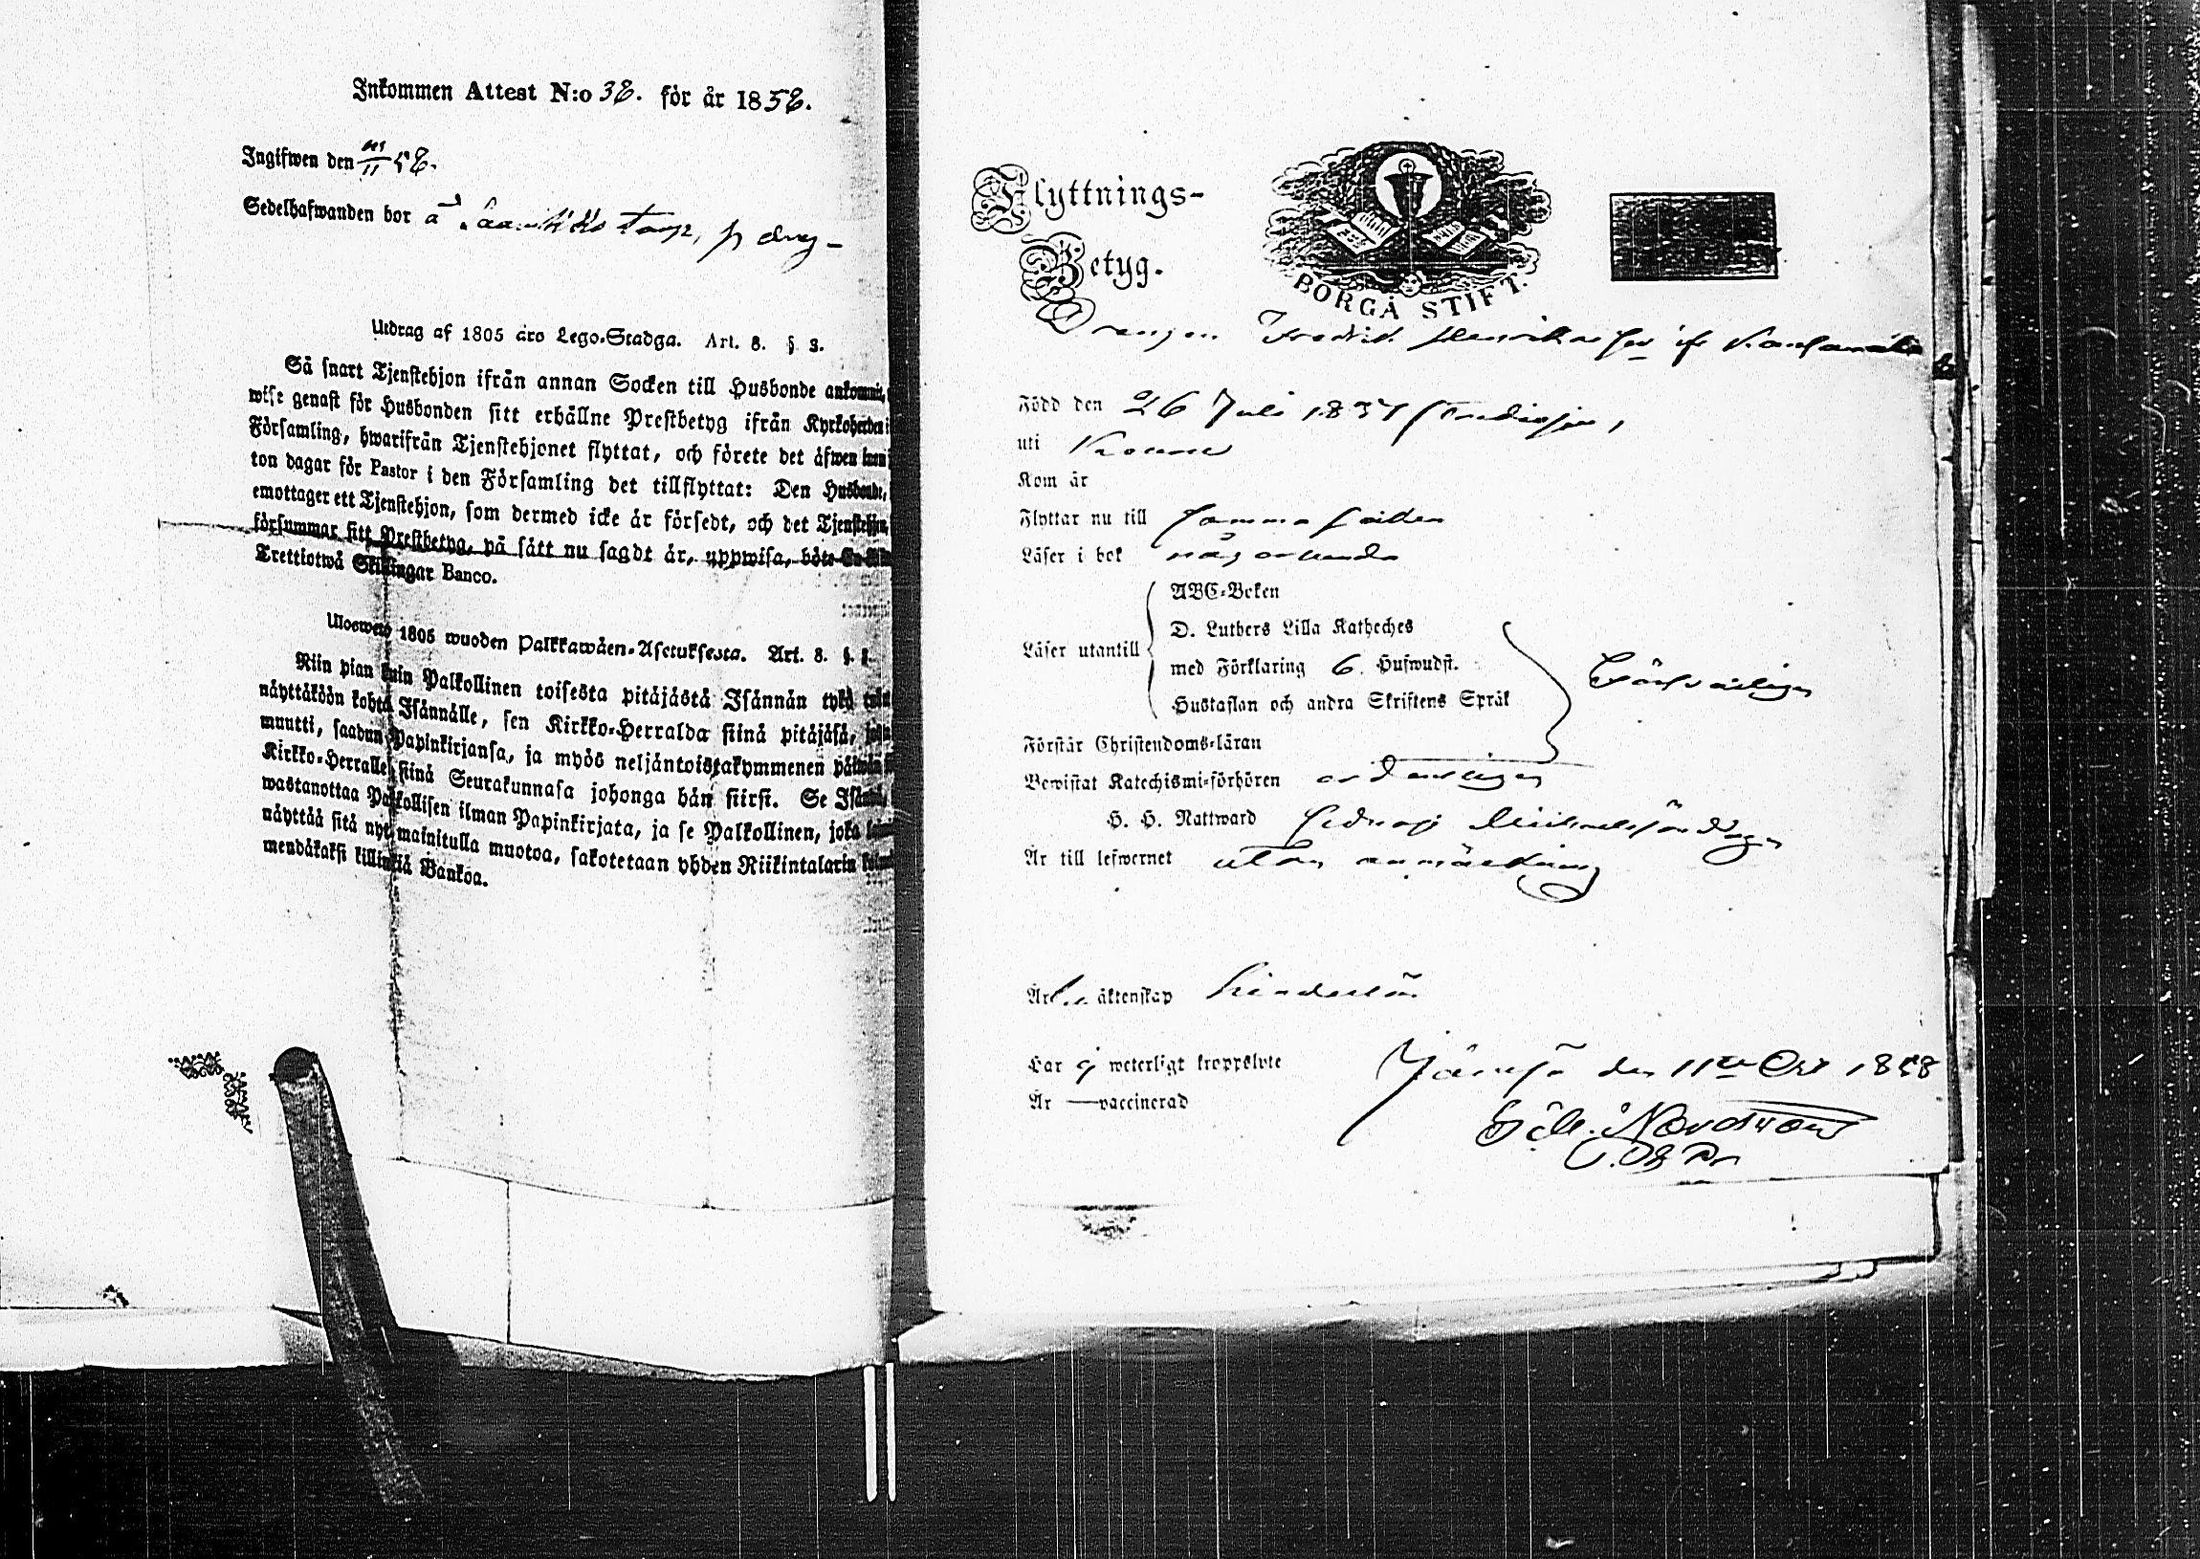 Inkommen Attest N:o 38. för år 1858.
Ingifwen den /11 58.
Sedelhafwanden bor å torp,
Utdrag af 1805 års Lego-Stadga. Art. 8. § 3.
Så snart Tjenstehjon ifrån annan Socken till Husbonde ankommit,
wise genast för Husbonden sitt erhållne Prestbetyg ifrån Kyrkoherden i
Församling, hwarifrån Tjenstehjonet flyttat, och förete det äfwen inen
ton dagar för Pastor i den Församling det tillflyttat: Den Husbonde,
emottager ett Tjenstehjon, som dermed icke är försedt, och det Tjenstehjon,
försummar sitt Prestbetyg, på sätt nu sagdt är, uppwisa, böte En
Trettiotwå Skillingar Banco.
Ulosweto 1805 wuoden Palkkawäen-Asetuksesta. Art. 8. §.
Niin pian kuin Palkollinen toisesta pitäjästä Isännän tykö
näyttäköön kohta Isännälle, sen Kirkko-Herralda siinä pitäjäsä,
muutti, saadun Papinkirjansa, ja myös neljäntoistakymmenen päiwän
Kirkko-Herralle siinä Seurakunnasa johonga hän siirsi. Se Isäntä,
wastanottaa Palkollisen ilman Papinkirjata, ja se Palkollinen, joka
näyttää sitä nyt mainitulla muotoa, sakotetaan yhden Riikintalarin
mendäkaksi killinkiä Bankoa.
Flyttnings-
Betyg.
BORGÅ STIFT.
Drengen Fredrik Henriksson ifr
Född den 26 Juli 1837
uti
Kom år
Flyttar nu till
Läser i bok någorlunda
Läser utantill
ABC-Boken
D. Luthers Lilla Katheches
med Förklaring 6 Hufwudst.
Hustaflan och andra Skriftens Språk
Försvarligen
Förstår Christendoms-läran
Bewistat Katechismi-förhören ordentligen
H. H. Nattward
Är till lefwernet utan anmärkning
Är äktenskap hinderlös
Har ej weterligt kroppslyte
Är — vaccinerad
Jämsä den 11te Oct 1858
Nordström